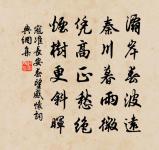 灞岸春波遠
秦川暮雨微
凭高正愁絕
煙樹更斜暉
寇準長安春望感懷詞
典網集